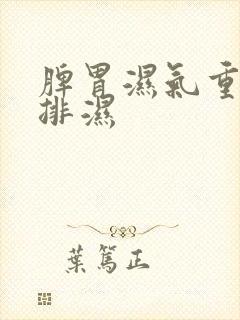 脾胃濕氣重
排濕
葉篤正